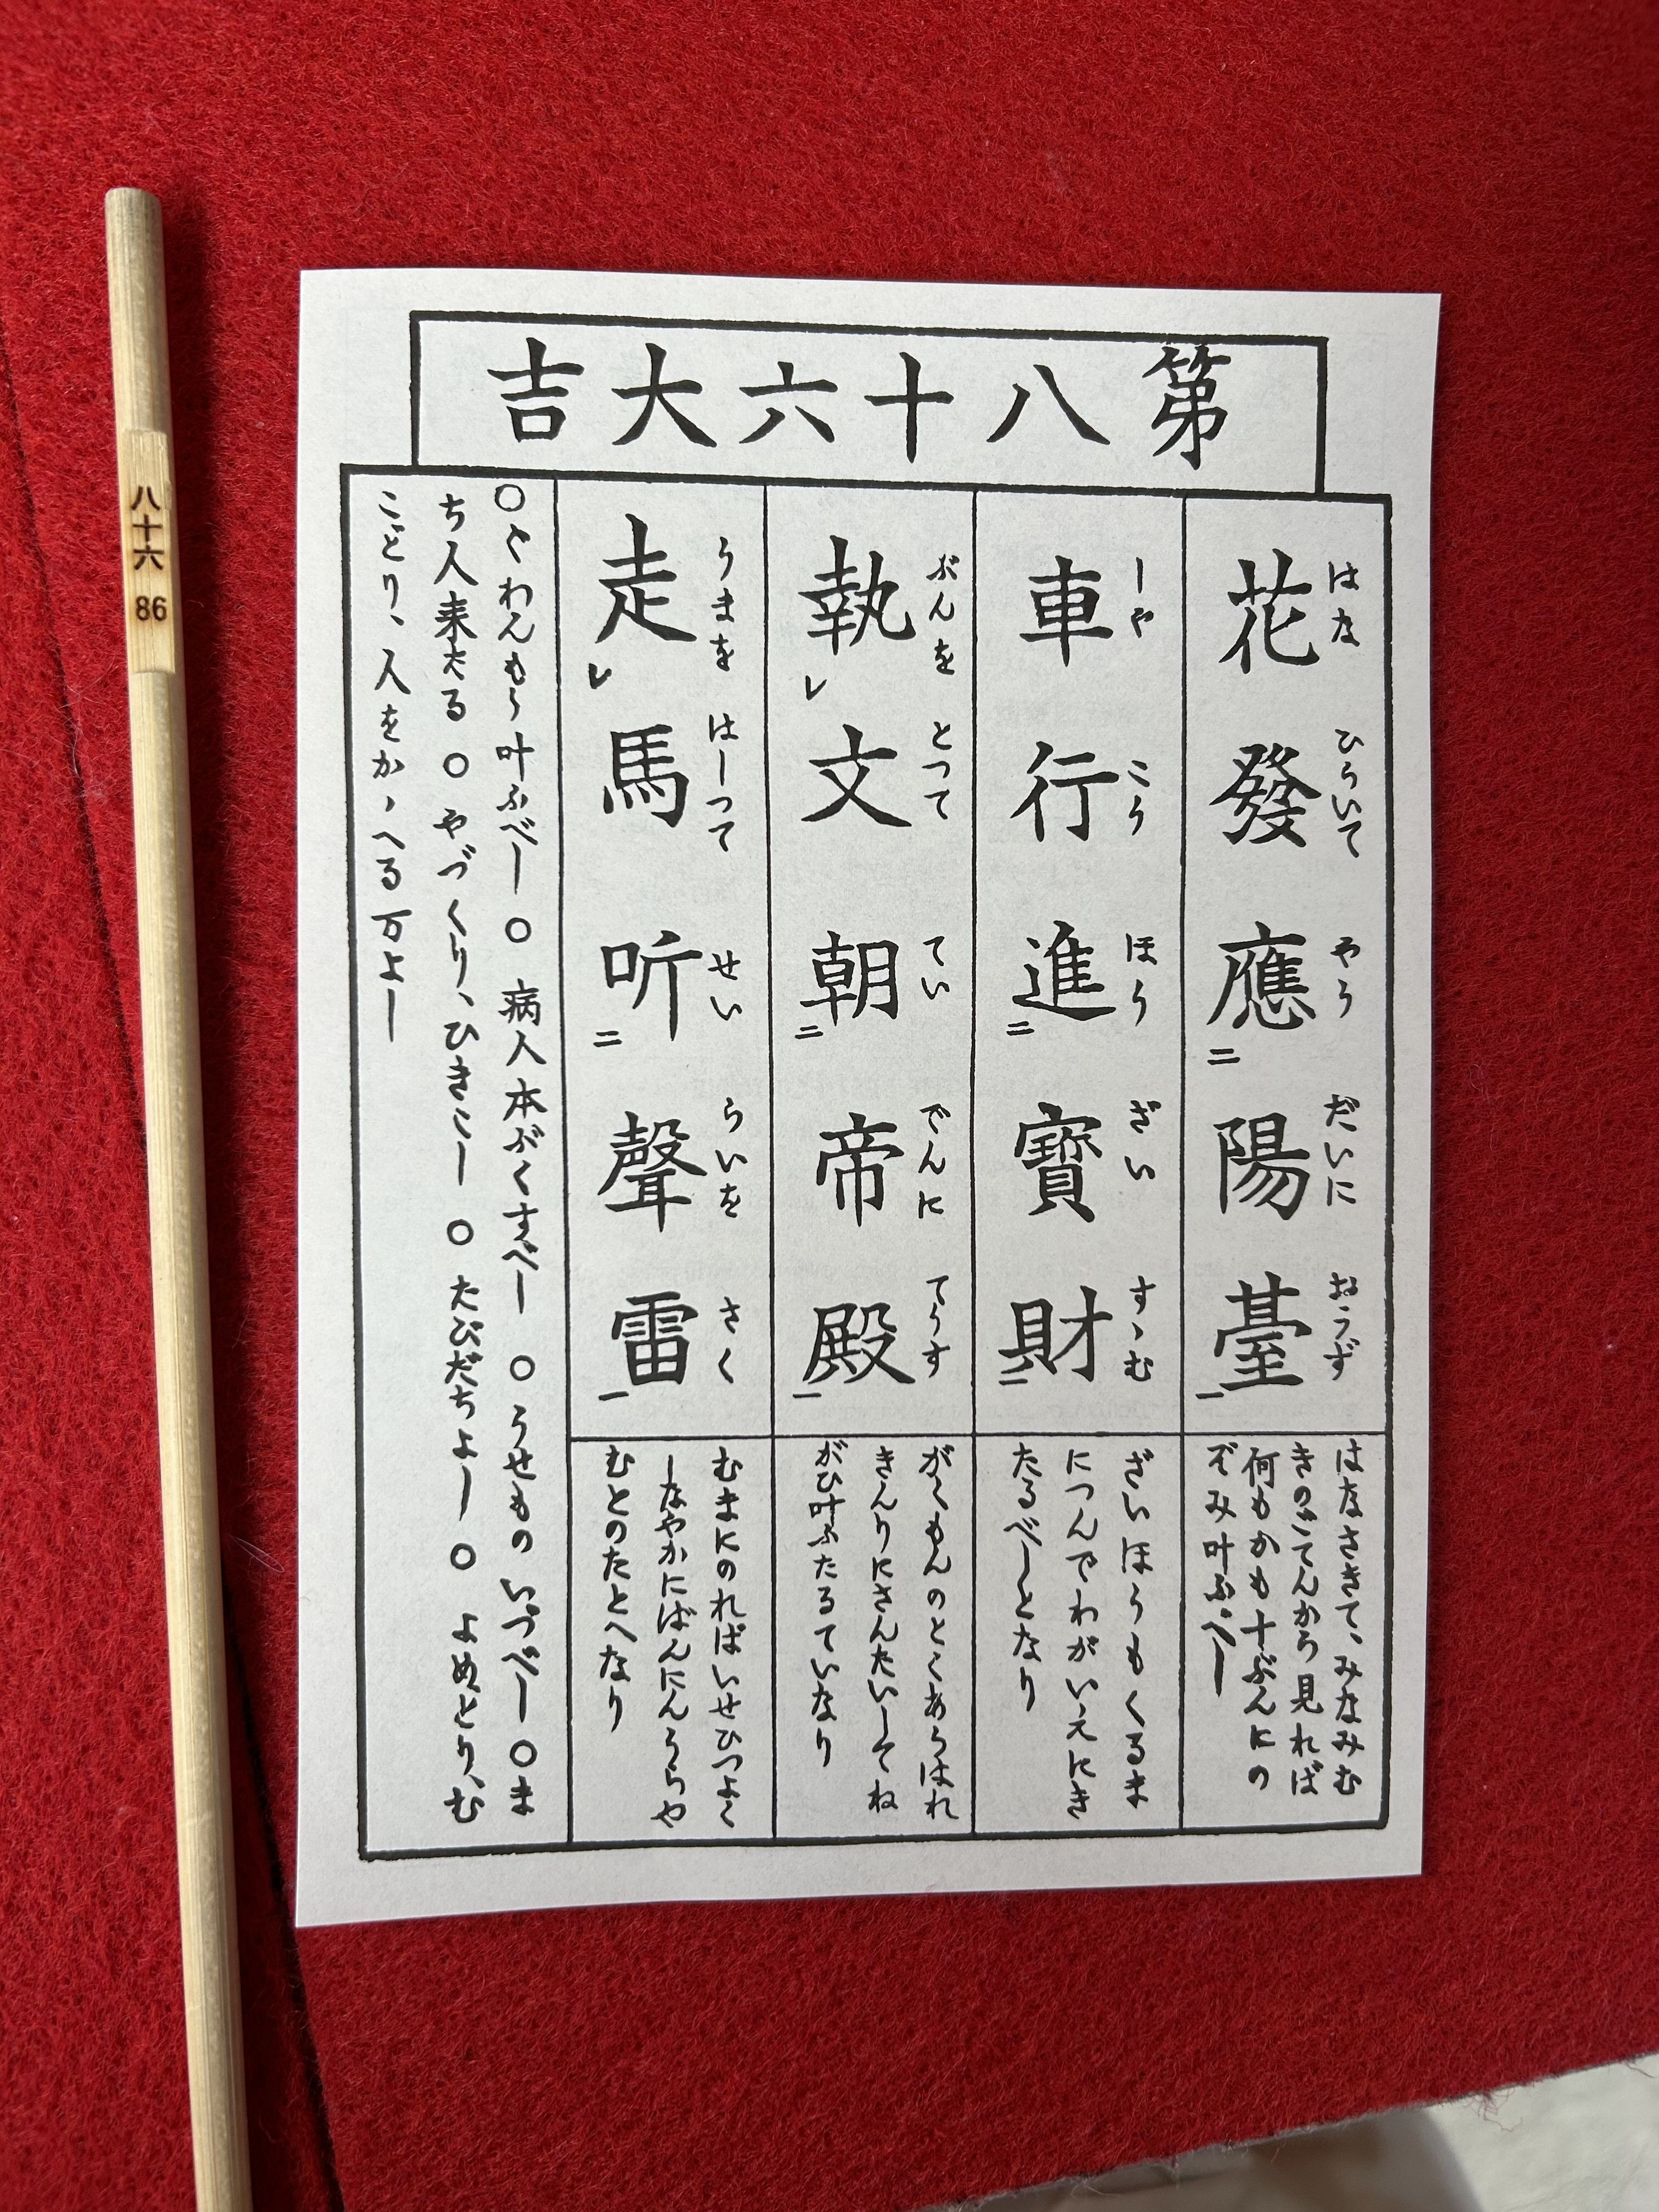 第八十六大吉
はな ひらいて やう だいに おうず
花發應二陽臺一
はなさきて、みなみむ
きのごてんから見れば
何もかも十ぶんにの
ぞみ叶ふべし
しや こう ほう ざい すゝむ
車行進二寳財二
ざいほうもくるま
につんでわがいえにき
たるべしとなり
ぶんを とつて てい でんに てうす
執レ文朝二帝殿一
がくもんのとくあらはれ
きんりにさんだいしてね
がひ叶ふたるていなり
うまを はしつて せい らいを きく
走レ馬听二聲雷一
むまにのればいせひつよく
しなやかにばんにんうらや
むとのたとへなり
〇くわんもう叶ふべし〇病人本ぶくすべし〇うせものいづべし〇ま
ち人来たる〇やづくり、ひきこし〇たびだちよし〇よめとり、む
こどり、人をかゝへる万よし
八十六 86